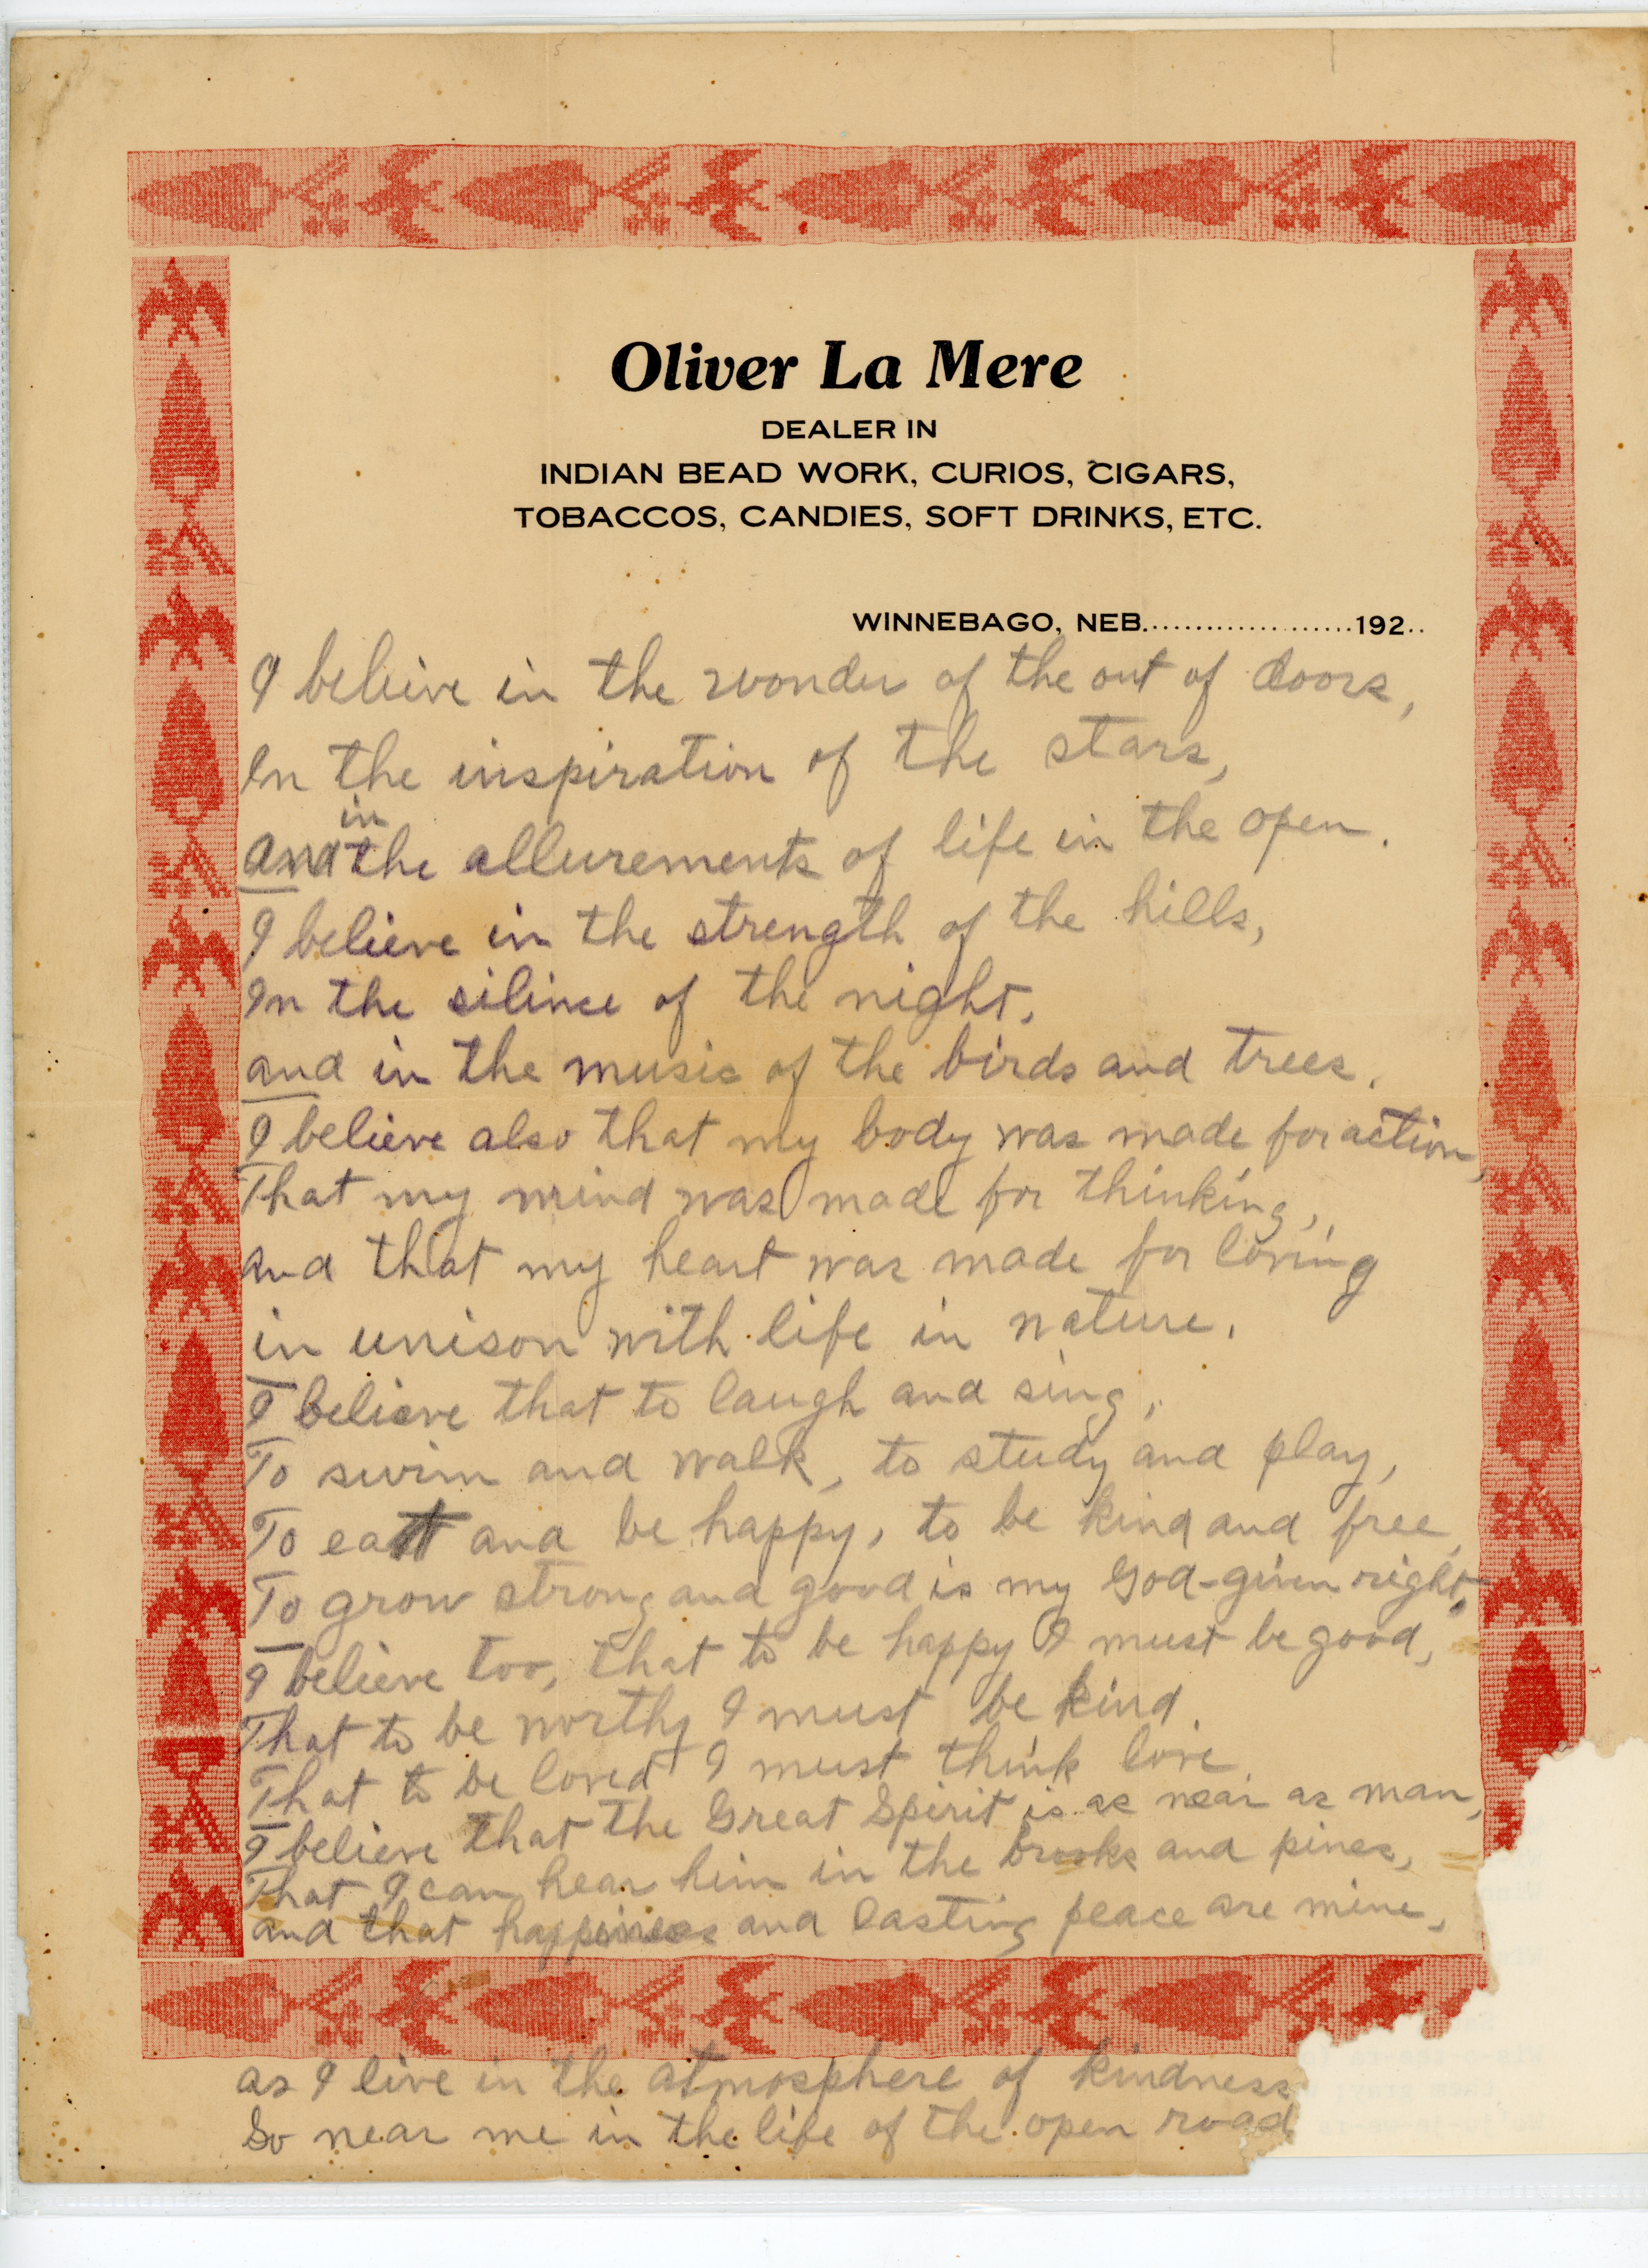 Oliver La Mere
DEALER IN
INDIAN BEAD WORK, CURIOS, CIGARS,
TOBACCOS, CANDIES, SOFT DRINKS, ETC.
WINNEBAGO, NEB.....................192..
I believe in the wonder of the out of doors,
In the inspiration of the stars,
in
and the allurements of life in the open.
I believe in the strength of the hills,
In the silince of the night,
and in the music of the birds and trees.
I believe also that my body was made for action,
That my mind was made for thinking,
and that my heart was made for loving
in unison with life in nature.
I believe that to laugh and sing,
To swim and walk, to study and play,
To eat and be happy, to be kind and free,
To grow strong and good is my God-given right.
I believe too, that to be happy I must be good,
That to be worthy I must be kind.
That to be loved I must think love.
I believe that the Great Spirit is as near as man,
That I can hear him in the brooks and pines,
and that happiness and lasting peace are mine,
as I live in the atmosphere of kindness
So near me in the life of the open road